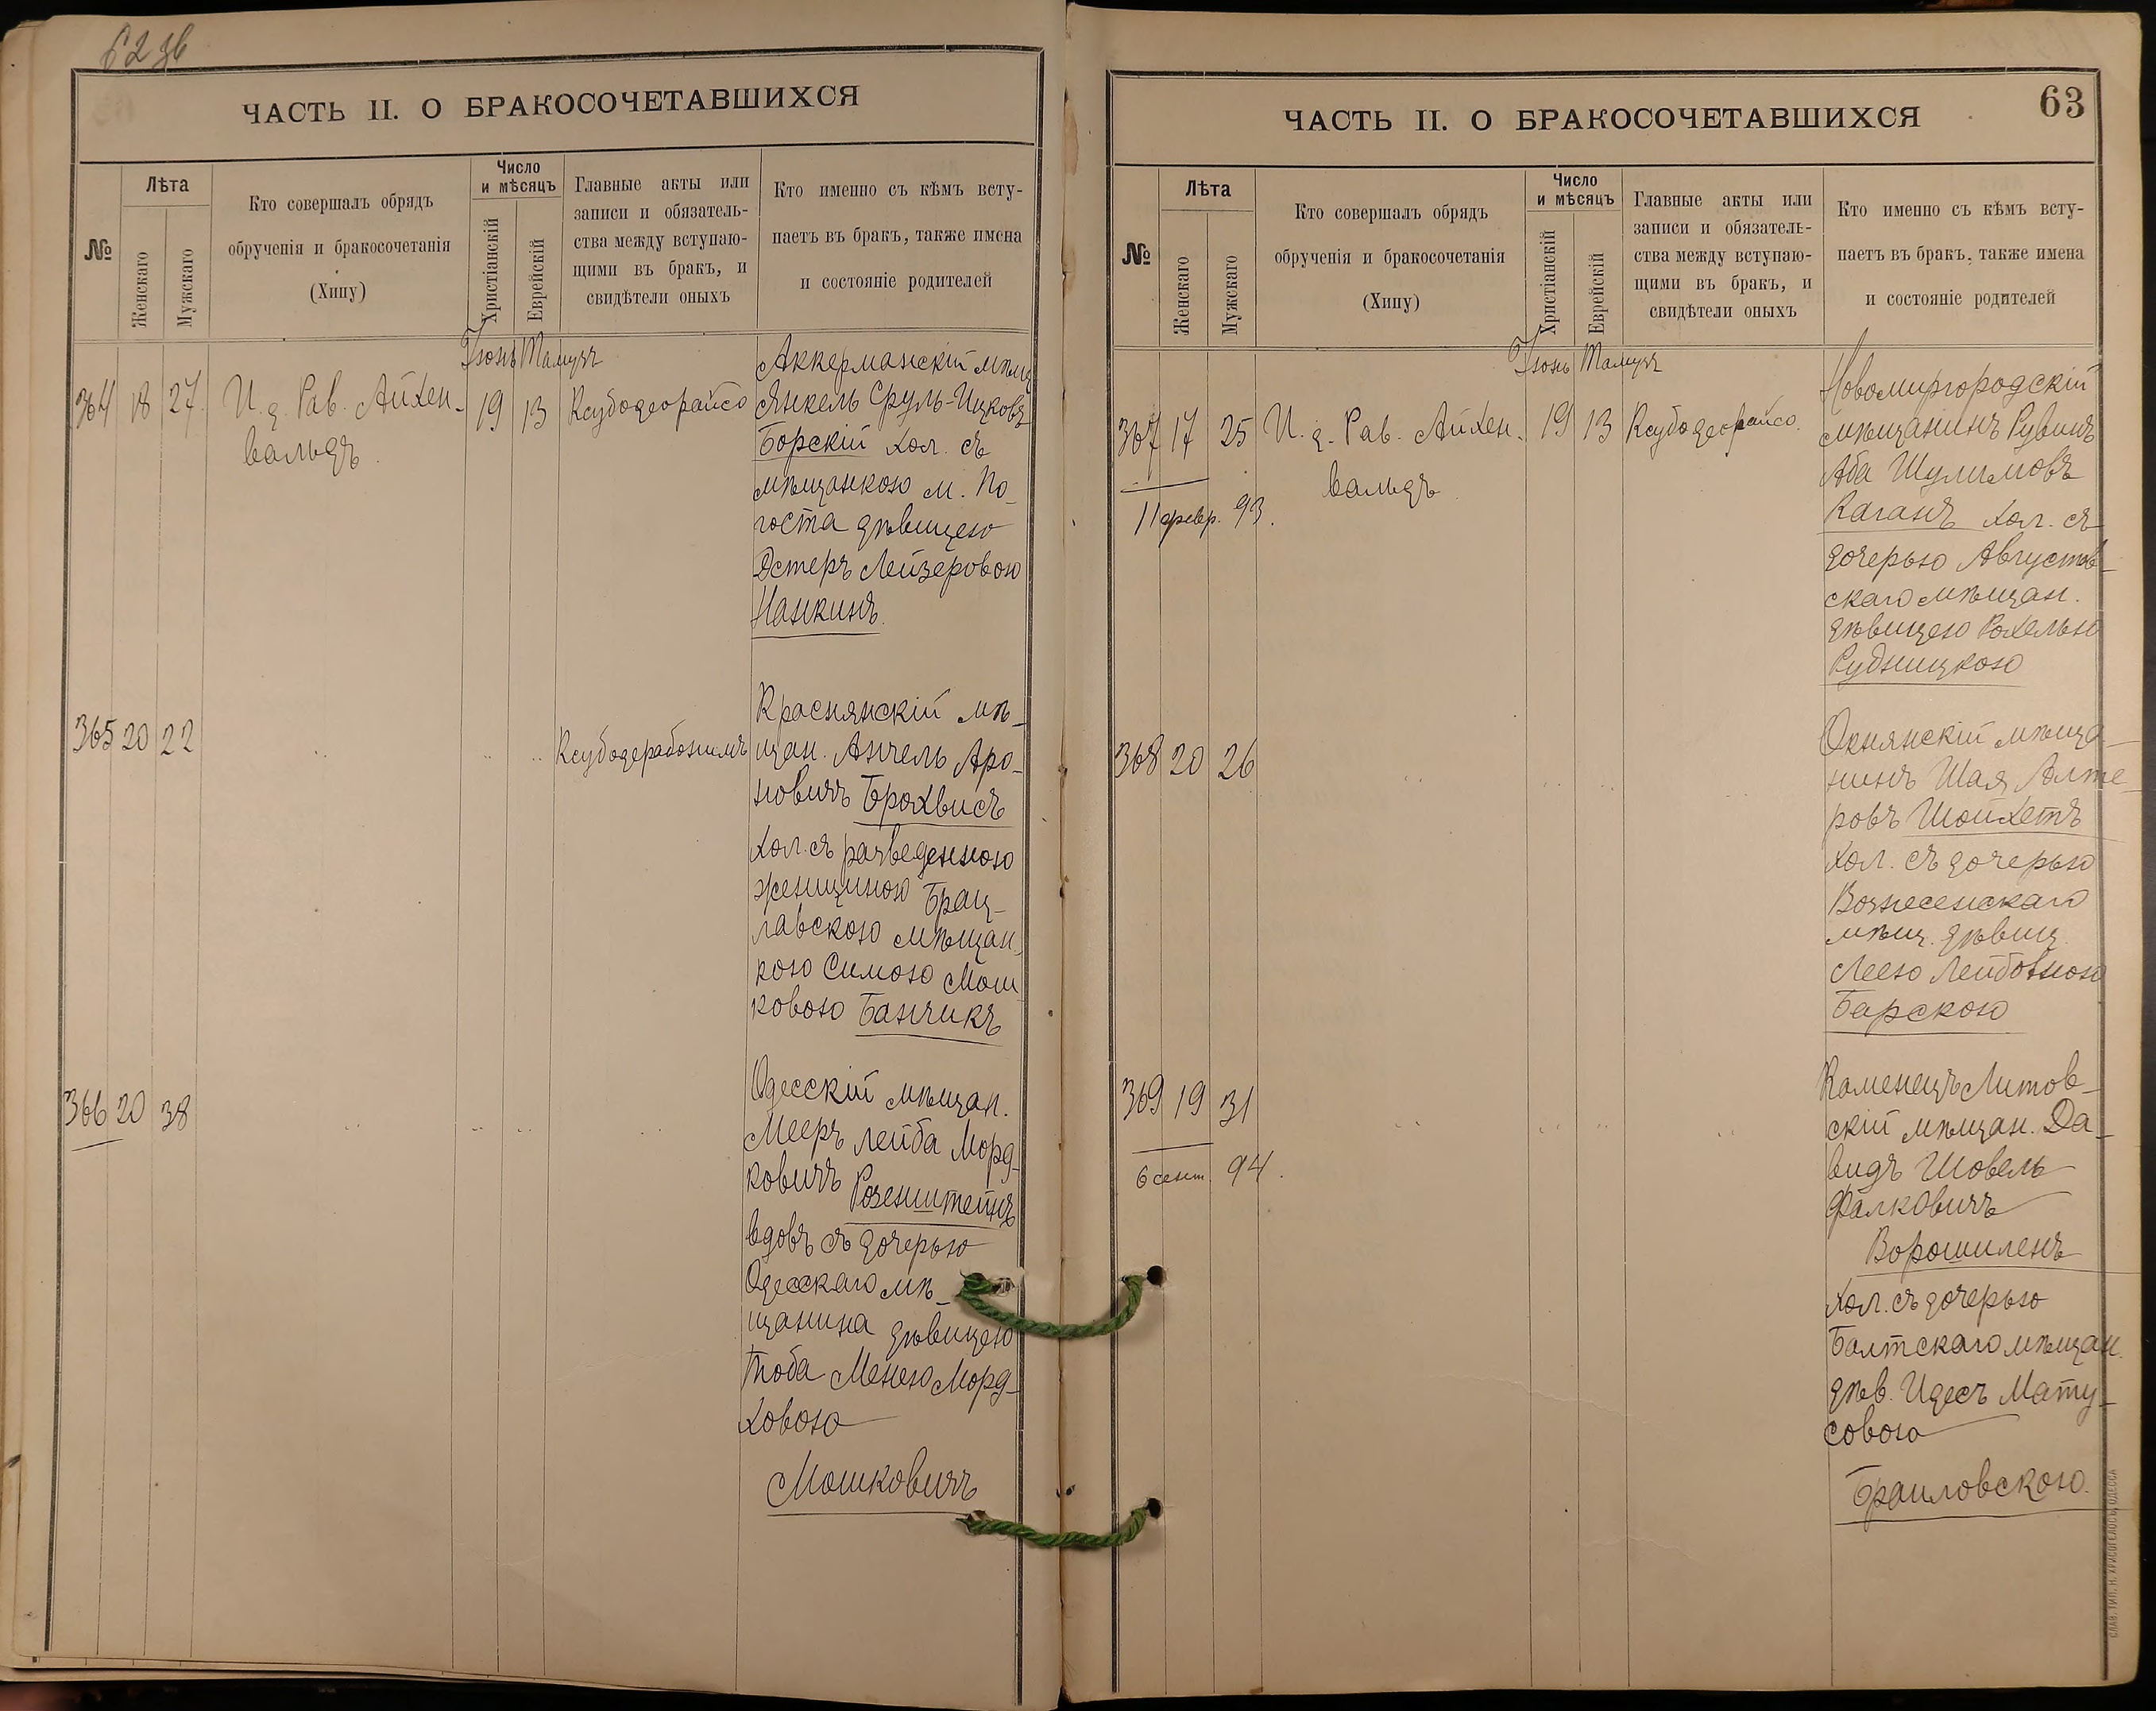 62 зв
ЧАСТЬ II. О БРАКОСОЧЕТАВШИХСЯ
№
Лѣта
Женскаго
Мужскаго
Кто совершалъ обрядъ
обрученія и бракосочетанія
(Хипу)
Число
и мѣсяцъ
Христіанскій
Еврейскій
Главные акты или
записи и обязатель-
ства между вступаю-
щими въ бракъ, и
свидѣтели оныхъ
Кто именно съ кѣмъ всту-
паетъ въ бракъ, также имена
и состояніе родителей
Іюнь Тамузъ
364 18 27 И. д. Рав. Айхен-
вальдъ
19 13 Ксубодеорайсо
Аккерманскій мѣщ
Янкель Сруль-Ицковъ
Борскій хол. съ
мѣщанкою м. По-
госта дѣвицею
Эстеръ Лейзеровою
Нанкинъ.
365 20 22 Ксубодерабонимъ
Краснянскій мѣ-
щан. Анчель Аро-
новичъ Брохвисъ
хол. съ разведенною
женщиною Брац-
лавскою мѣщан-
кою Симою Мош
ковою Банчикъ
366 20 38
Одесскій мѣщан.
Мееръ Лейба Морд-
ковичъ Розенштейнъ
вдовъ съ дочерью
Одесскаго мѣ-
щанина дѣвицею
Тоба Менею Морд-
ховою
Мошковичъ
63
ЧАСТЬ II. О БРАКОСОЧЕТАВШИХСЯ
№
Лѣта
Женскаго
Мужскаго
Кто совершалъ обрядъ
обрученія и бракосочетанія
(Хипу)
Число
и мѣсяцъ
Христіанскій
Еврейскій
Главные акты или
записи и обязатель-
ства между вступаю-
щими въ бракъ, и
свидѣтели оныхъ
Кто именно съ кѣмъ всту-
паетъ въ бракъ, также имена
и состояніе родителей
Іюнь Тамузъ
367 17 25 И. д. Рав. Айхен-
вальдъ
19 13 Ксубодеорайсо.
11 февр. 93.
Новомиргородскій
мѣщанинъ Рувинъ
Аба Шулимовъ
Каганъ хол. съ
дочерью Августов-
скаго мѣщан.
дѣвицею Рохелью
Рудницкою
368 20 26
Окнянскій мѣща-
нинъ Шая Алте-
ровъ Шойхетъ
хол. съ дочерью
Вознесенскаго
мѣщ. дѣвиц.
Леею Лейбовною
Барскою
369 19 31
6 сент. 94.
Каменецъ Литов-
скій мѣщан. Да-
видъ Шовель
Фалковичъ
Ворошиленъ
хол. съ дочерью
Балтскаго мѣщан.
дѣв. Идесъ Мату-
совою
Браиловскою.
СЛАВ. ТИП. Н. ХРИСОГЕЛОСЪ, ОДЕССА